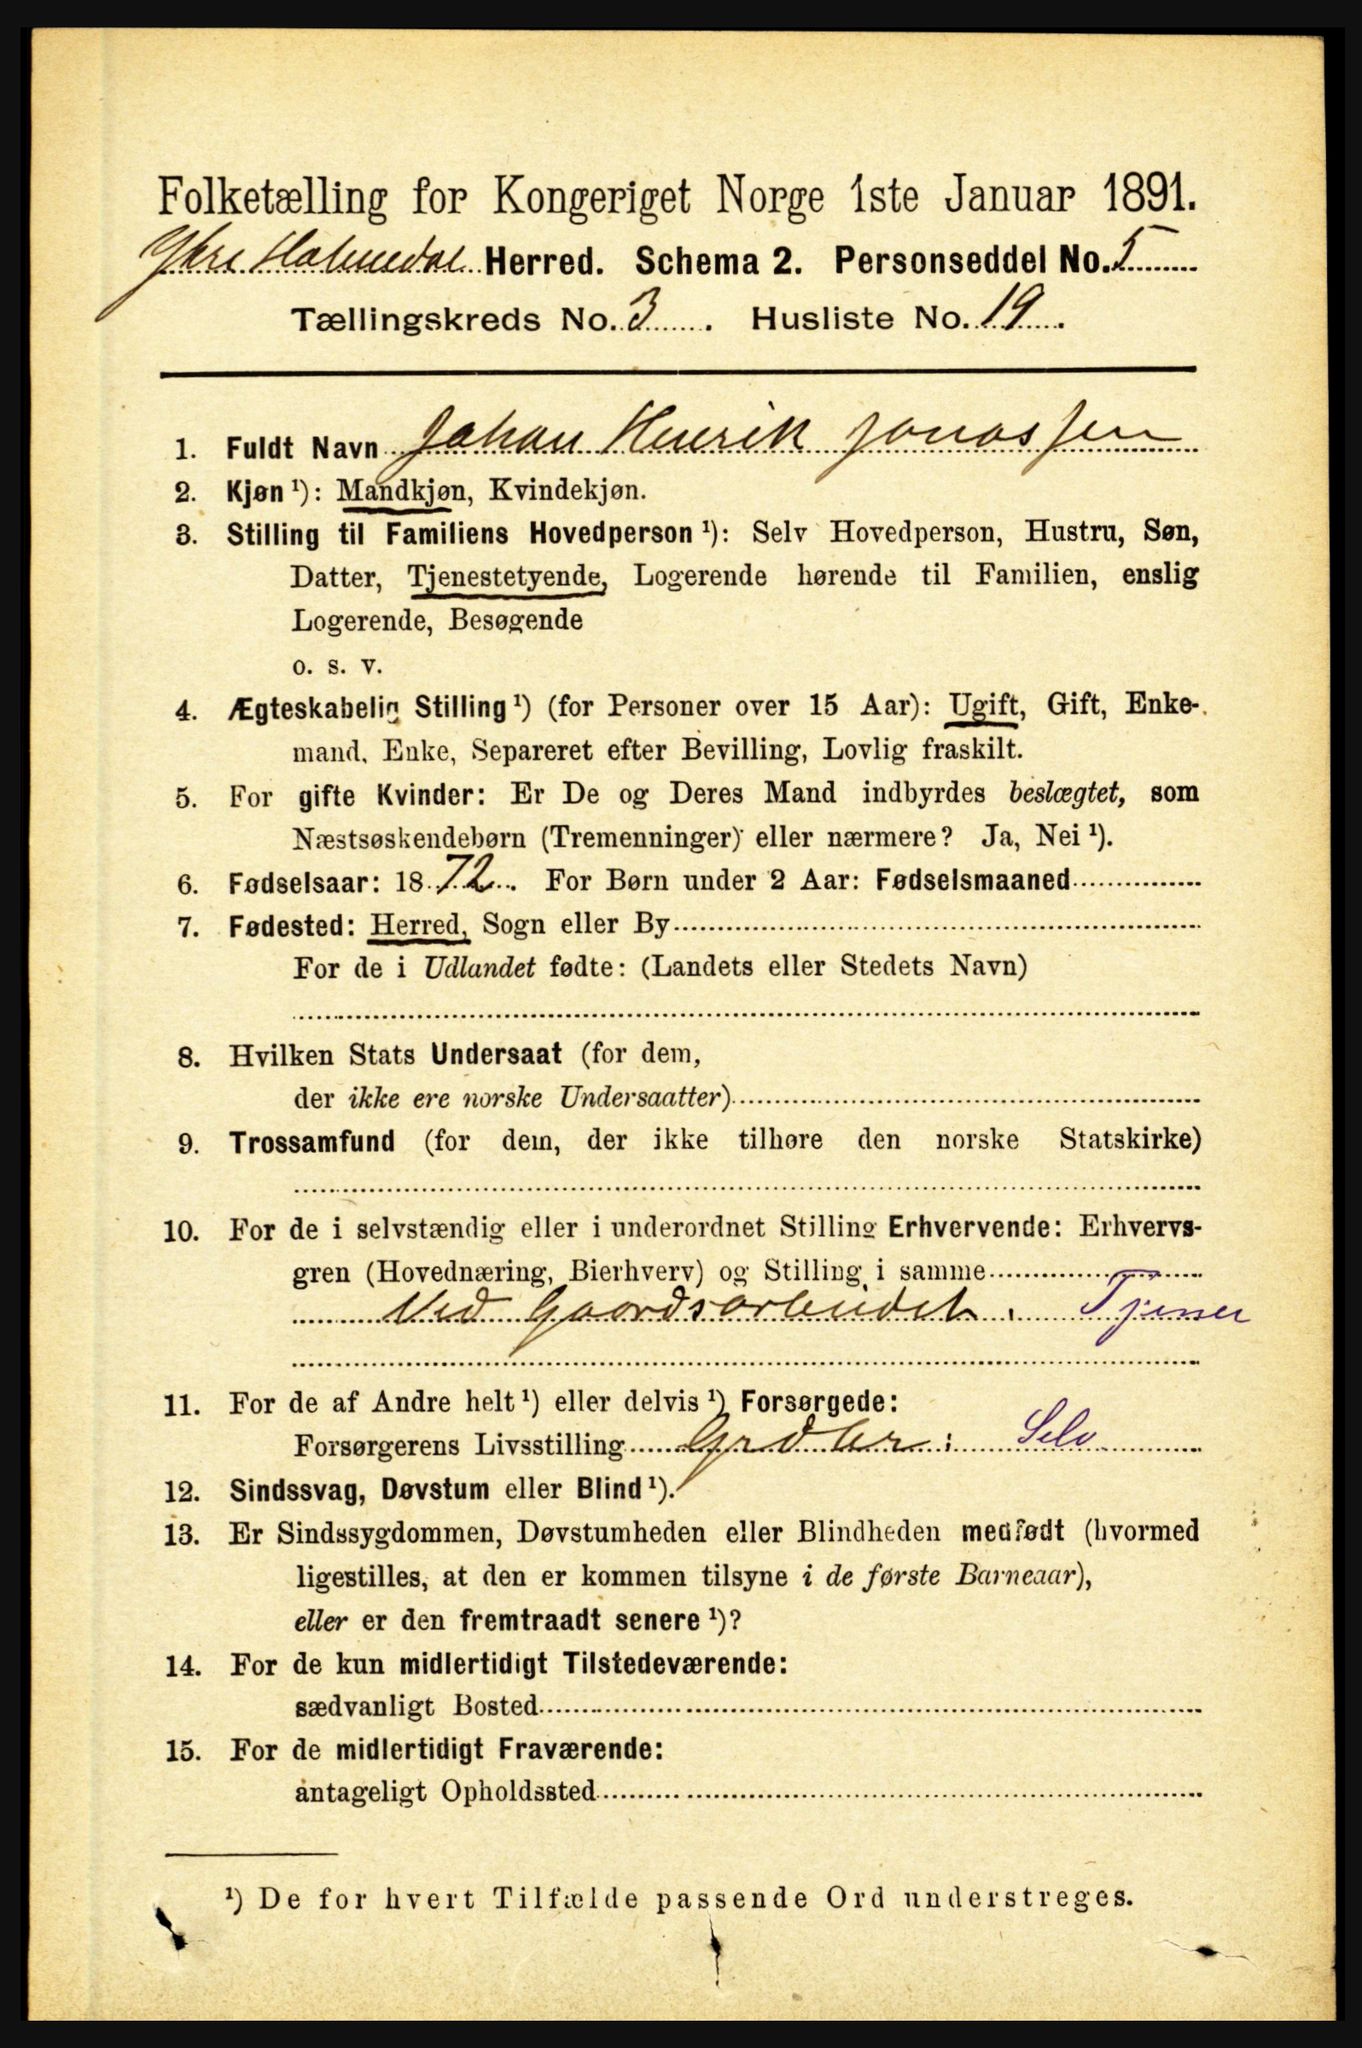 Folketælling for Kongeriget Norge 1ste Januar 1891.
Ytre Holmedal Herred. Schema 2. Personseddel No. 5
Tællingskreds No. 3. Husliste No. 19.
1. Fuldt Navn Johan Henrik Jonassen
2. Kjøn ¹): Mandkjøn, Kvindekjøn.
3. Stilling til Familiens Hovedperson ¹): Selv Hovedperson, Hustru, Søn,
Datter, Tjenestetyende, Logerende hørende til Familien, enslig
Logerende, Besøgende
o. s. v.
4. Ægteskabelig Stilling ¹) (for Personer over 15 Aar): Ugift, Gift, Enke-
mand, Enke, Separeret efter Bevilling, Lovlig fraskilt.
5. For gifte Kvinder: Er De og Deres Mand indbyrdes beslægtet, som
Næstsøskendebørn (Tremenninger) eller nærmere? Ja, Nei ¹).
6. Fødselsaar: 1872. For Børn under 2 Aar: Fødselsmaaned
7. Fødested: Herred, Sogn eller By
For de i Udlandet fødte: (Landets eller Stedets Navn)
8. Hvilken Stats Undersaat (for dem,
der ikke ere norske Undersaatter)
9. Trossamfund (for dem, der ikke tilhøre den norske Statskirke)
10. For de i selvstændig eller i underordnet Stilling Erhvervende: Erhvervs-
gren (Hovednæring, Bierhverv) og Stilling i samme
Ved Gaardsarbeidet. Tjener
11. For de af Andre helt ¹) eller delvis ¹) Forsørgede:
Forsørgerens Livsstilling Grdbr: Selv
12. Sindssvag, Døvstum eller Blind ¹).
13. Er Sindssygdommen, Døvstumheden eller Blindheden medfødt (hvormed
ligestilles, at den er kommen tilsyne i de første Barneaar),
eller er den fremtraadt senere ¹)?
14. For de kun midlertidigt Tilstedeværende:
sædvanligt Bosted
15. For de midlertidigt Fraværende:
antageligt Opholdssted
¹) De for hvert Tilfælde passende Ord understreges.